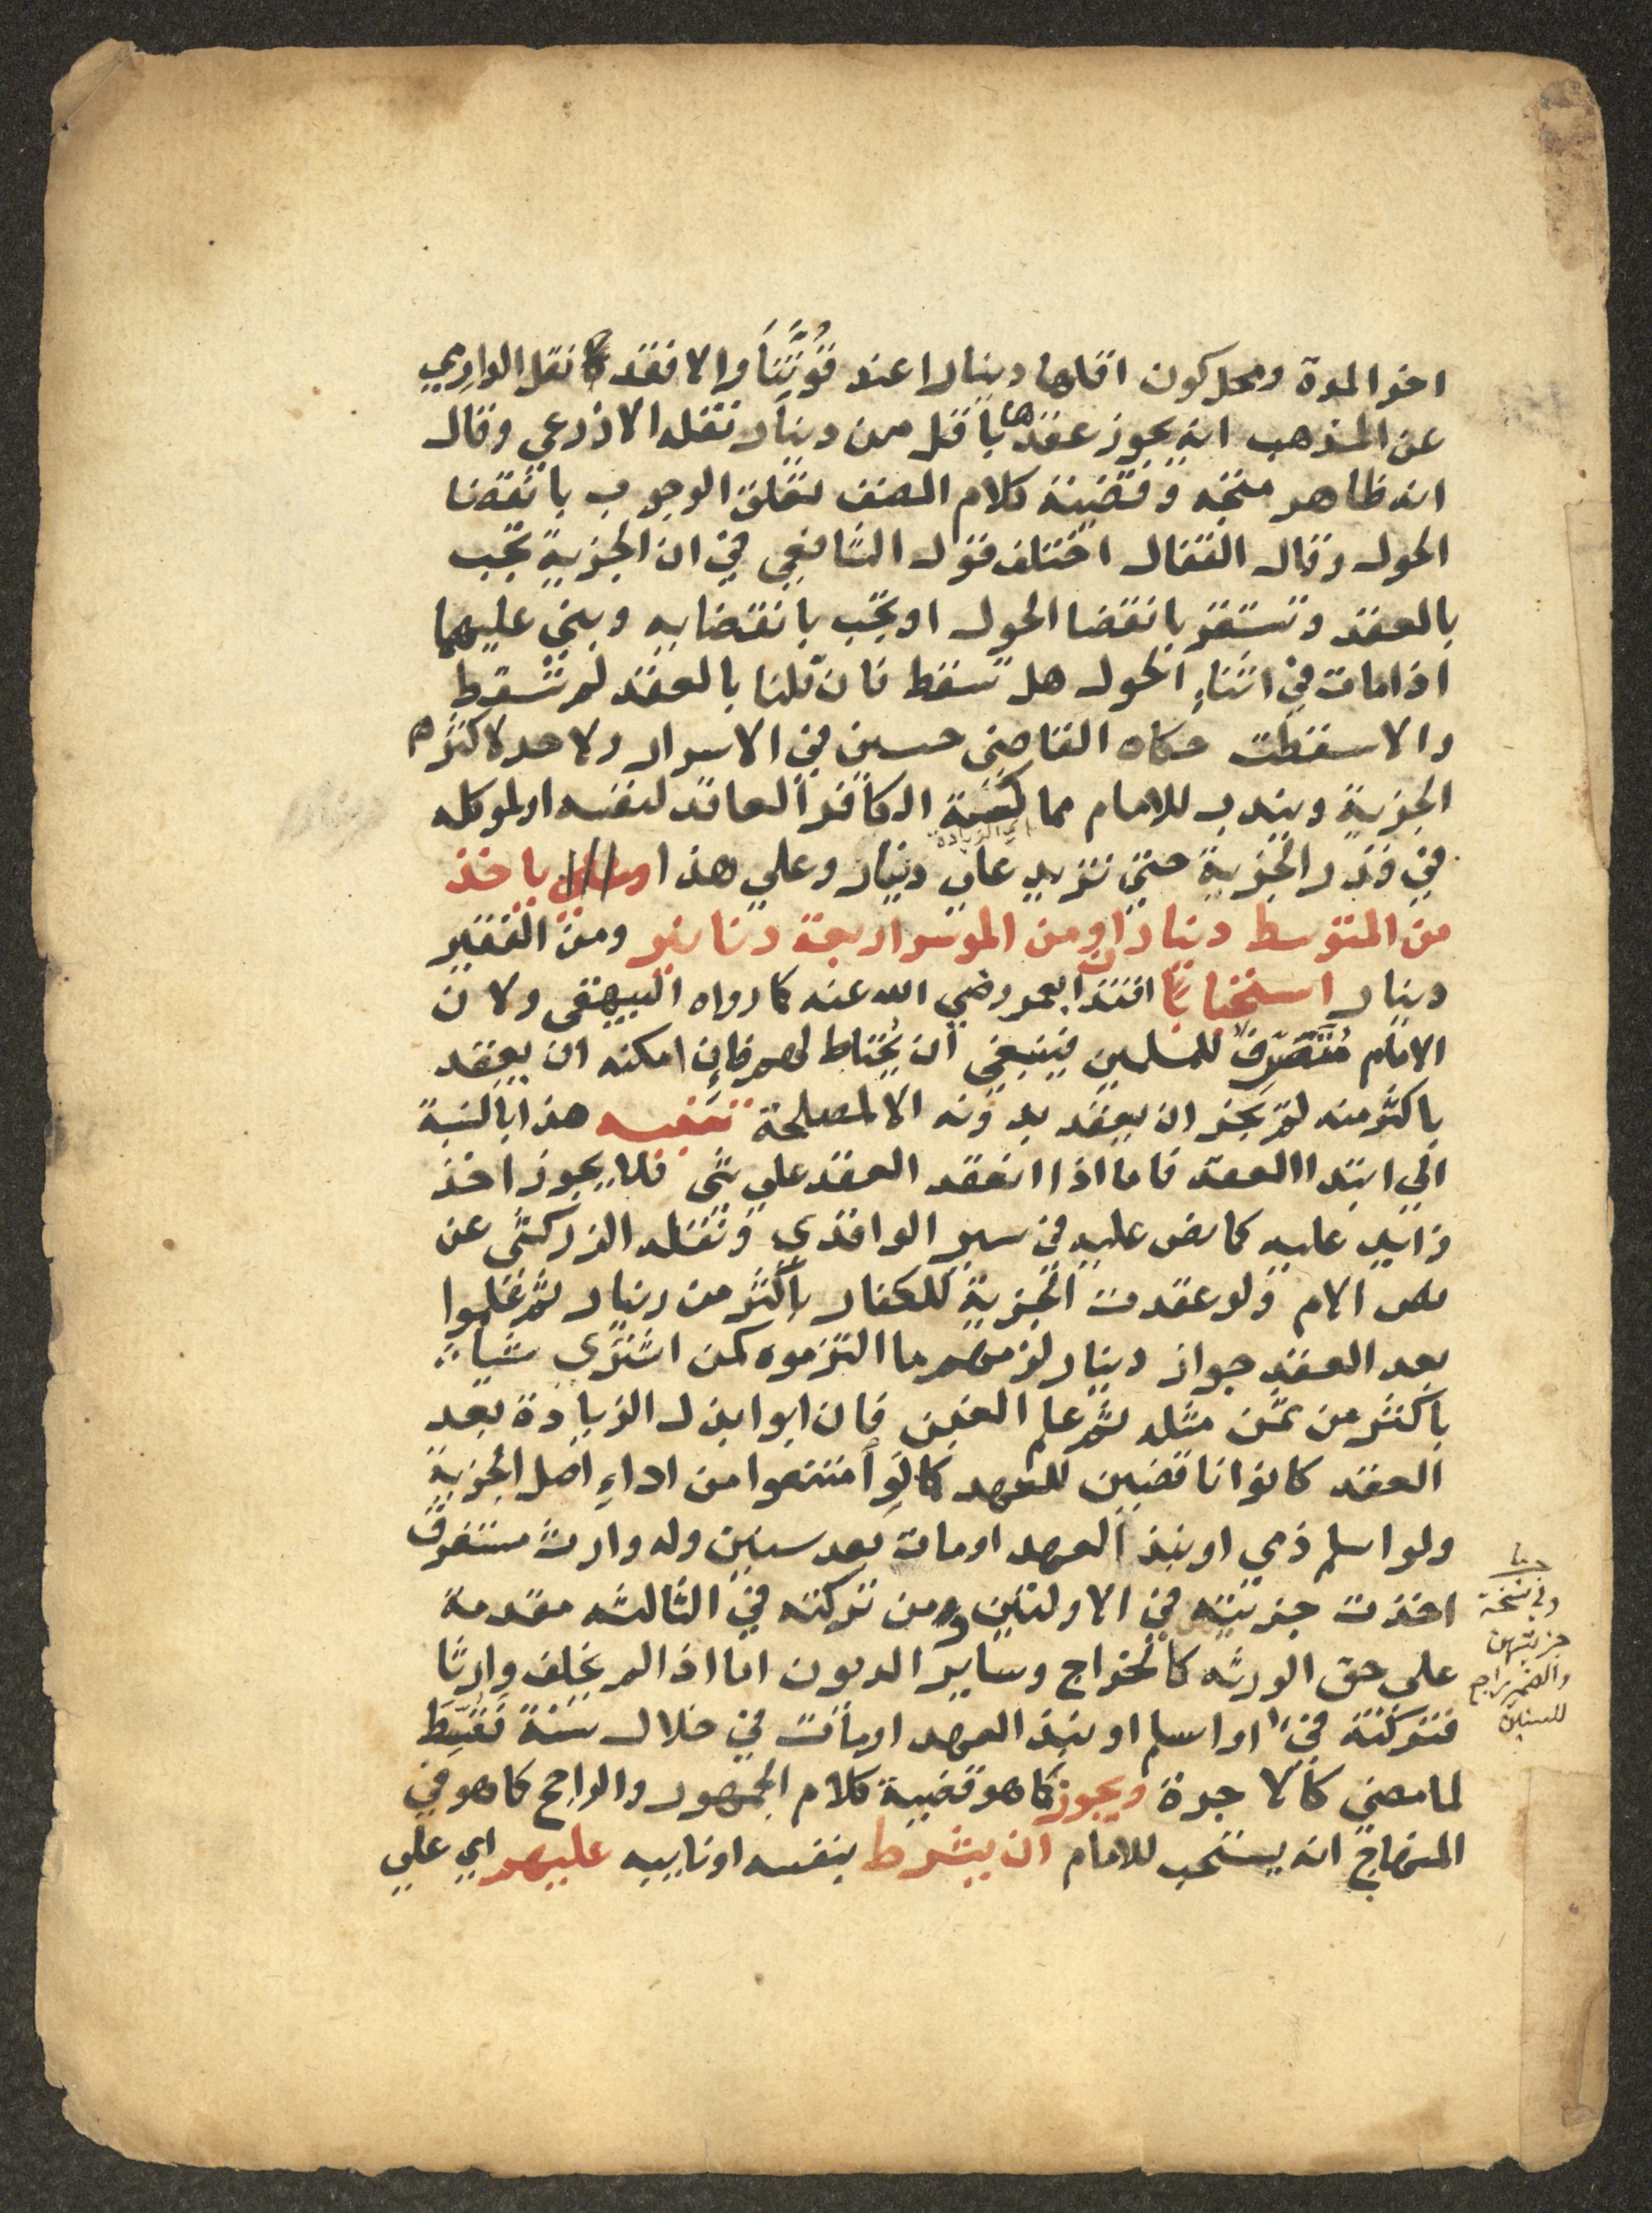 اخر المدة ومحل كون اقلها دينارا عند قُوَّتِنَا والا فقد نقل الدارمي
عن المذهب انه يجوز عقدها باقل من دينار نقله الاذرعي وقال
انه ظاهر متجه وقضية كلام المصنف تعلق الوجوب بانقضا
الحول وقال القفال اختلف قول الشافعي في ان الجزية تجب
بالعقد وتستقر بانقضا الحول او تجب بانقضايه وبني عليهما
اذا مات في اثناء الحول هل تسقط فان قلنا بالعقد لم تسقط
والا سقطت حكاه القاضي حسين في الاسرار ولا حد لاكثره
الجزية ويندب للامام مماكسة الكافر العاقد لنفسه او لموكله
اي الزيادة
في قدر الجزية حتي تزيد علي دينار وعلي هذا ياخذ
من المتوسط دينارين ومن الموسر اربعة دنانير ومن الفقير
دينار استحبابا اقتدا بعمر رضي الله عنه كما رواه البيهقي ولان
الامام مُتَصَرِّفٌ للمسلمين فينبغي ان يُحتاط لهم فإن امكنه ان يعقد
باكثر منه لم يجز ان يعقد بدونه الا لمصلحة تنبيه هذا بالنسبة
الي ابتدا العقد فاما اذا انعقد العقد علي شي فلا يجوز اخذ
زايد عليه كما نص عليه في سير الواقدي ونقله الزركشي عن
نص الام ولو عقدت الجزية للكفار باكثر من دينار ثم علموا
بعد العقد جواز دينار لزمهم ما التزموه كمن اشتري شيا
باكثر من ثمن مثله ثم علم الغبن فان ابوا بذل الزيادة بعد
العقد كانوا ناقضين للعهد كما لَوِ امتنعوا من اداءِ اصل الجزية
ولو اسلم ذمي او نبذ العهد او مات بعد سنين وله وارث مستغرق
اخذت جزيته في الاولتين ومن تركته في الثالثه مقدمة
علي حق الورثه كالخراج وساير الديون اما اذا لم يخلف وارثا
فتركته في او اسلم او نبذ العهد او مات في خلال سنة فَقُسِّطَ
لما مضي كالاجرة ويجوز كما هو قضية كلام الجمهور والراجح كما هو في
المنهاج انه يستحب للامام ان يشرط بنفسه او نايبه عليهم اي علي
وفي نسخة
جزيتهن
والضمير راجع
للسنين